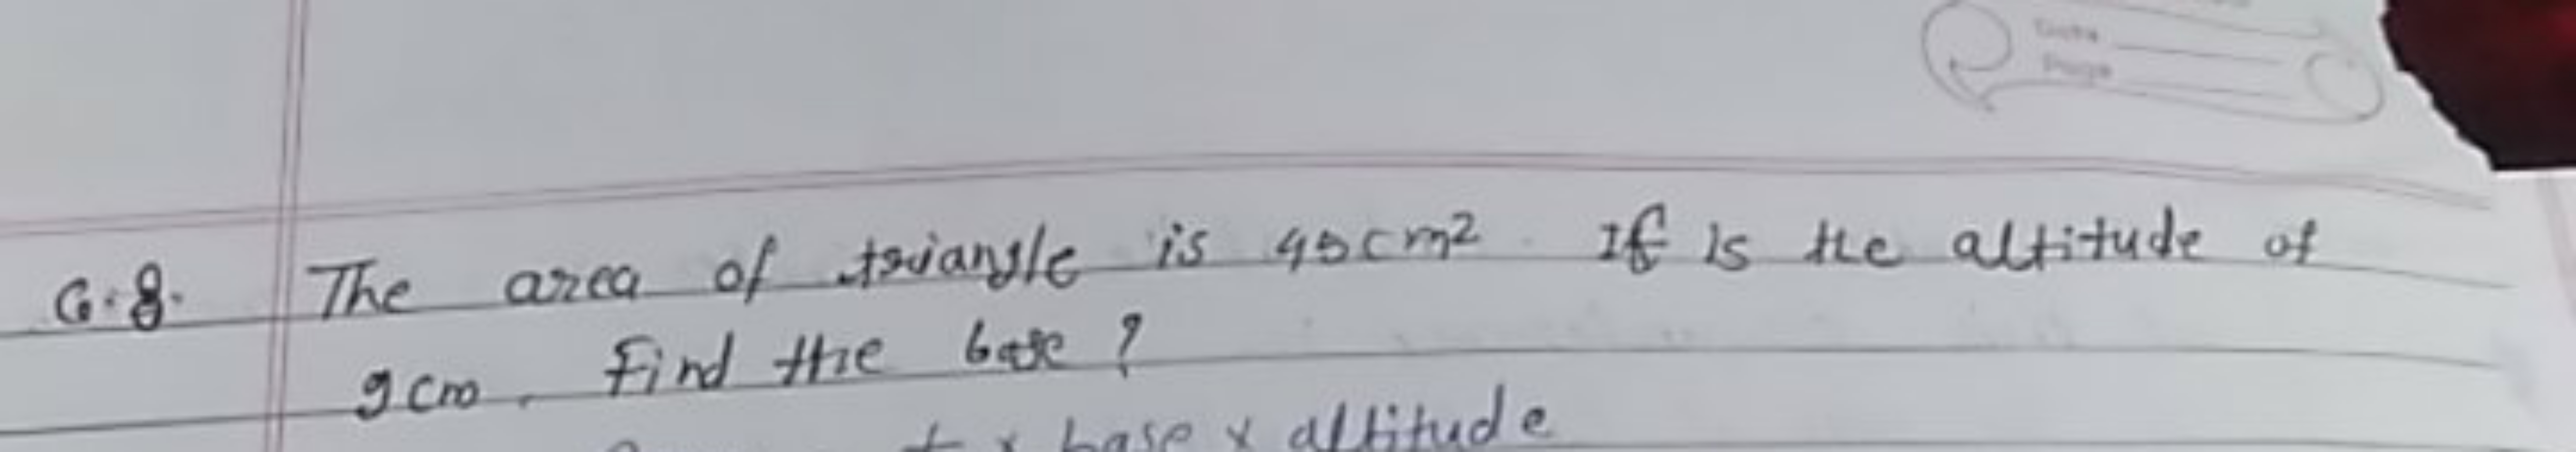 Date
Page
Q.8. The area of triangle is 45cm² If is the altitude of
9cm. Find the base ?
x base x altitude